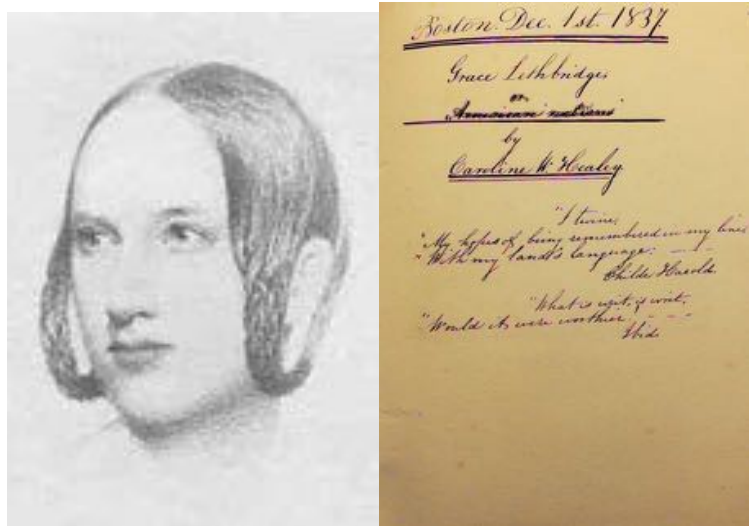 Boston. Dec. 1st. 1837
Grace Lethbridge;
or
American
by
Caroline W. Healey
"I twine,
"My hopes of being remembered in my line
"With my land's language: — — —
Childe Harold.
"What is writ, is writ,
"Would it were worthier. - - -
Ibid